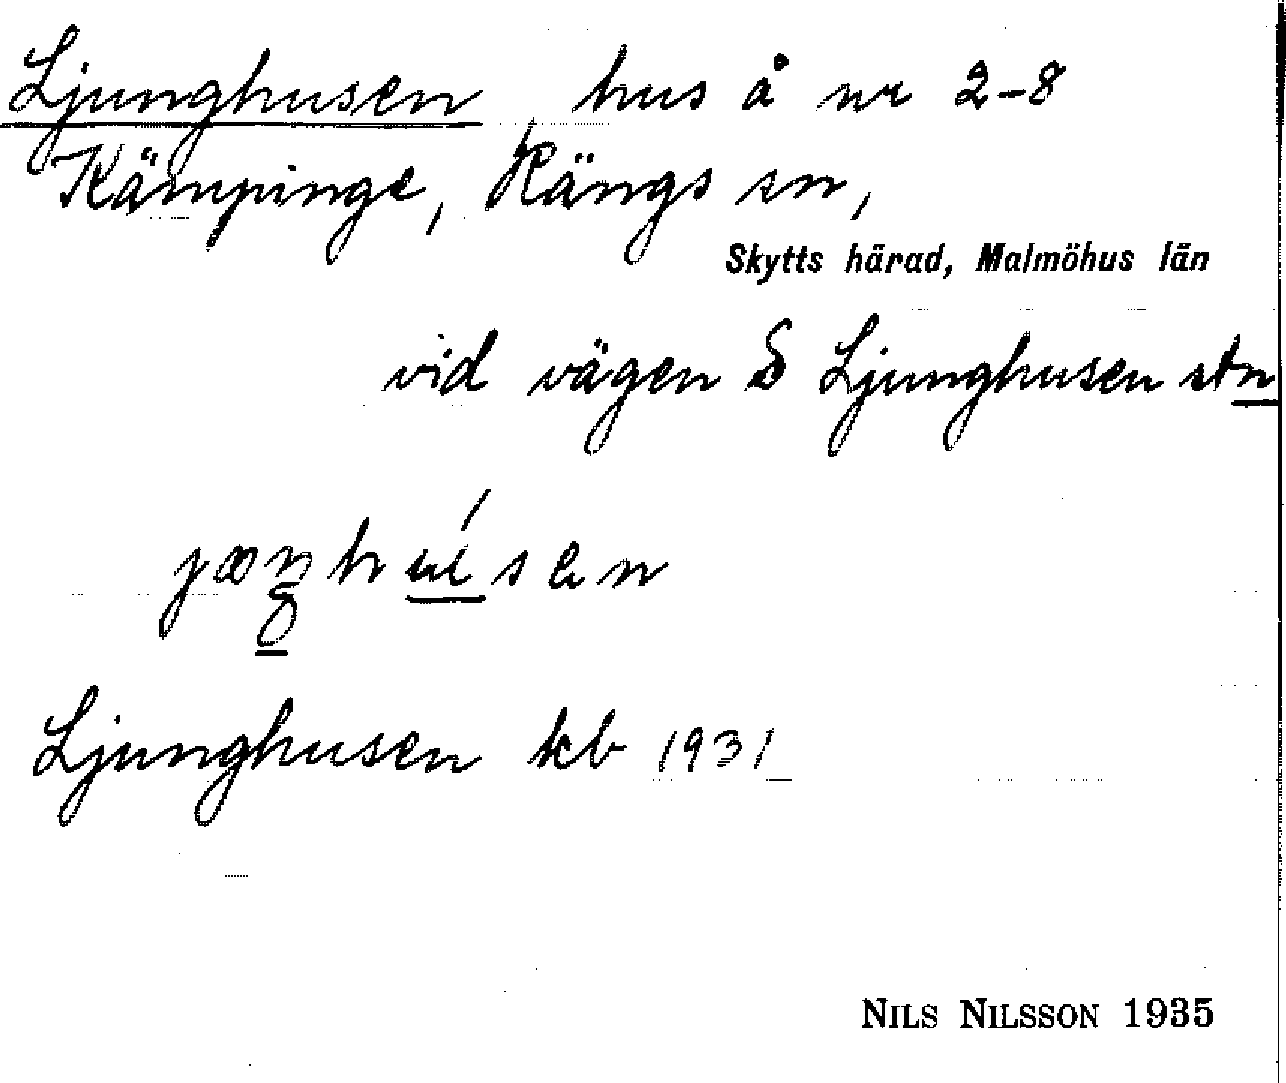 Ljunghusen, hus å nr 2-8
Kämpinge, Rängs sn,
Skytts härad, Malmöhus län
vid vägen S Ljunghusen stn
Ljunghusen kb 1931
NILS NILSSON 1935